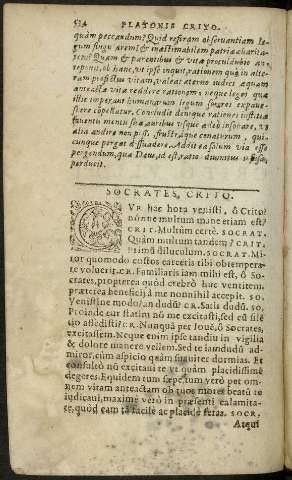 534 PLATONIS CRITO.
quàm peccandum? Quid referam observantiam le-
gum
patriæ charita-
tem? Quàm & parentibus & vitæ proculdubio an-
reponit, ob hanc, ut ipse inquit, rationem quòd in alte-
ram profectus vitam, valeat æterno iudici aquam
anteactæ vitæ reddere rationem: neque leges quæ
illic imperant humanarum legum sorores expaue-
scere compellatur. Concludit denique rationes
mentis suæ auribus usque adeò insonare, ut
alia audire non possit, frustráque conaturum, qui-
cunque pergat dissuadere. Addit ea solum via esse
pergendum, qua Deus, id est, ratio diuinitus
perducit.
SOCRATES, CRITO.
CVR hac hora venisti, ô Crito?
nónne multum mane etiam est?
CRIT. Multùm certè. SOCRAT.
Quàm multum tandem? CRIT.
Primū diluculum. SOCRAT. Mi-
ror quomodo custos carceris tibi obtempera-
re voluerit. CR. Familiaris iam mihi est, ô So-
crates, propterea quòd crebrò huc ventitem,
præterea beneficij à me nonnihil accepit. SO.
Venistíne modò, an dudū? CR. Satis dudū. SO.
Proinde cur statim nō me excitasti, sed cū silē
tio assedisti? CR. Nunquā per Iouē, ô Socrates,
excitassem. Neque enim ipse tandiu in vigilia
& dolore manere vellem. Sed te iamdudū ad-
miror, cùm aspicio quàm suauiter dormias. Et
consultò nō excitaui te vt quàm placidissimè
degeres. Equidem tum sæpe, tum verò per om-
nem vitam anteactam ob tuos mores beatū te
iudicaui, maximè verò in præsenti calamita-
te, quòd eam tā facilè ac placidè feras. SOCR.
Atqui